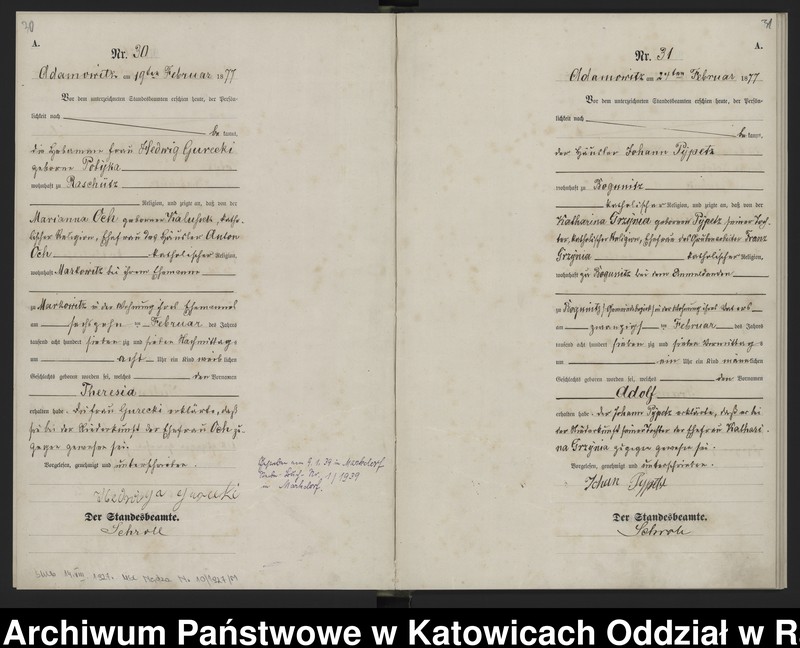 30
A.
Nr. 30
Adamowitz am 19ten Februar 1877
Vor dem unterzeichneten Standesbeamten erschien heute, der Persön-
lichkeit nach
be kannt,
die Hebamme Frau Hedwig Gurecki
geborne Potyka
wohnhaft zu Raschütz
Religion, und zeigte an, daß von der
Marianna Och geborenen Kalusek, katho-
lischer Religion, Ehefrau des Häusler Anton
Och katholischer Religion,
wohnhaft Markowitz bei ihrem Ehemanne
zu Markowitz in der Wohnung ihres Ehemannes
am sechszehn ten Februar des Jahres
tausend acht hundert sieben zig und sieben Nachmittags
um acht Uhr ein Kind weiblichen
Geschlechts geboren worden sei, welches den Vornamen
Theresia
erhalten habe. Die Frau Gurecki erklärte, daß
sie bei der Niederkunft der Ehefrau Och zu-
gegen gewesen sei.
Vorgelesen, genehmigt und unterschrieben.
Hedwiga Gurecki
Der Standesbeamte.
Schroll
Gestorben am 9. 1. 39 in Markdorf
Nr. 1/1939
Markdorf.
31
A.
Nr. 31
Adamowitz am Februar 1877
Vor dem unterzeichneten Standesbeamten erschien heute, der Persön-
lichkeit nach
be kannt,
der Häusler Johann Pÿpetz
wohnhaft zu Bogunitz
katholischer Religion, und zeigte an, daß von der
Katharina Grzÿnia geborenen Pÿpetz seiner Toch-
ter, katholischer Religion, Ehefrau des Franz
Grzÿnia katholischer Religion,
wohnhaft zu Bogunitz bei dem Anmeldenden
zu Bogunitz in der Wohnung ihres Vaters
am zwanzigst ten Februar des Jahres
tausend acht hundert sieben zig und sieben Vormittags
um ein Uhr ein Kind männlichen
Geschlechts geboren worden sei, welches den Vornamen
Adolf
erhalten habe. Der Johann Pÿpetz erklärte, daß er bei
der Niederkunft seiner Tochter der Ehefrau Kathari-
na Grzÿnia zugegen gewesen sei.
Vorgelesen, genehmigt und unterschrieben.
Johan Pÿpetz
Der Standesbeamte.
Schroll
Archiwum Państwowe w Katowicach Oddział w R